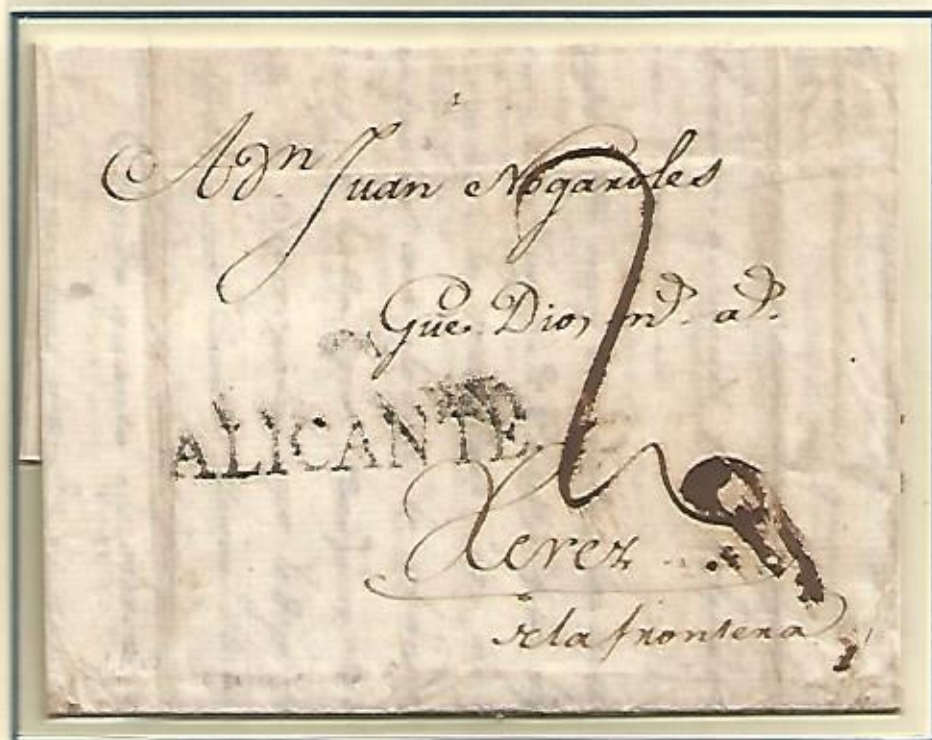 A Dn. Juan Nogaroles
Gue. Dios ms. as.
ALICANTE
Xerez
de la frontera